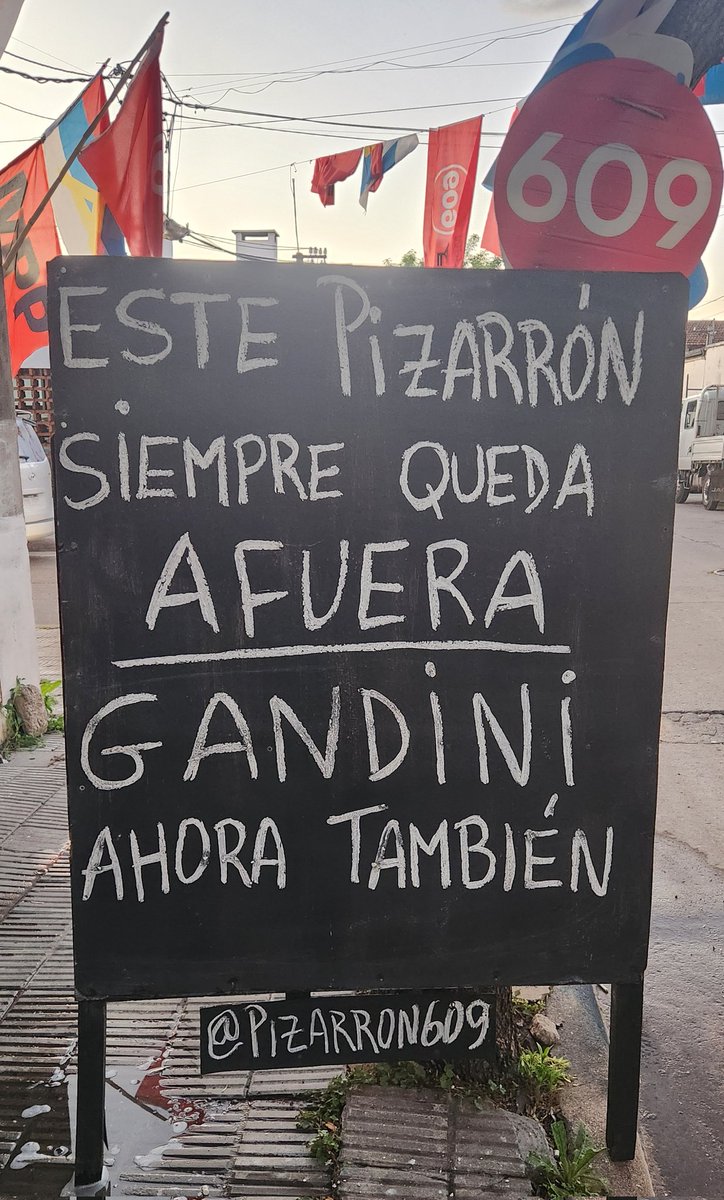 609
609
MPP
ESTE PiZARRÓN
SiEMPRE QUEDA
AFUERA
GANDiNi
AHORA TAMBIÉN
@PiZARRON609